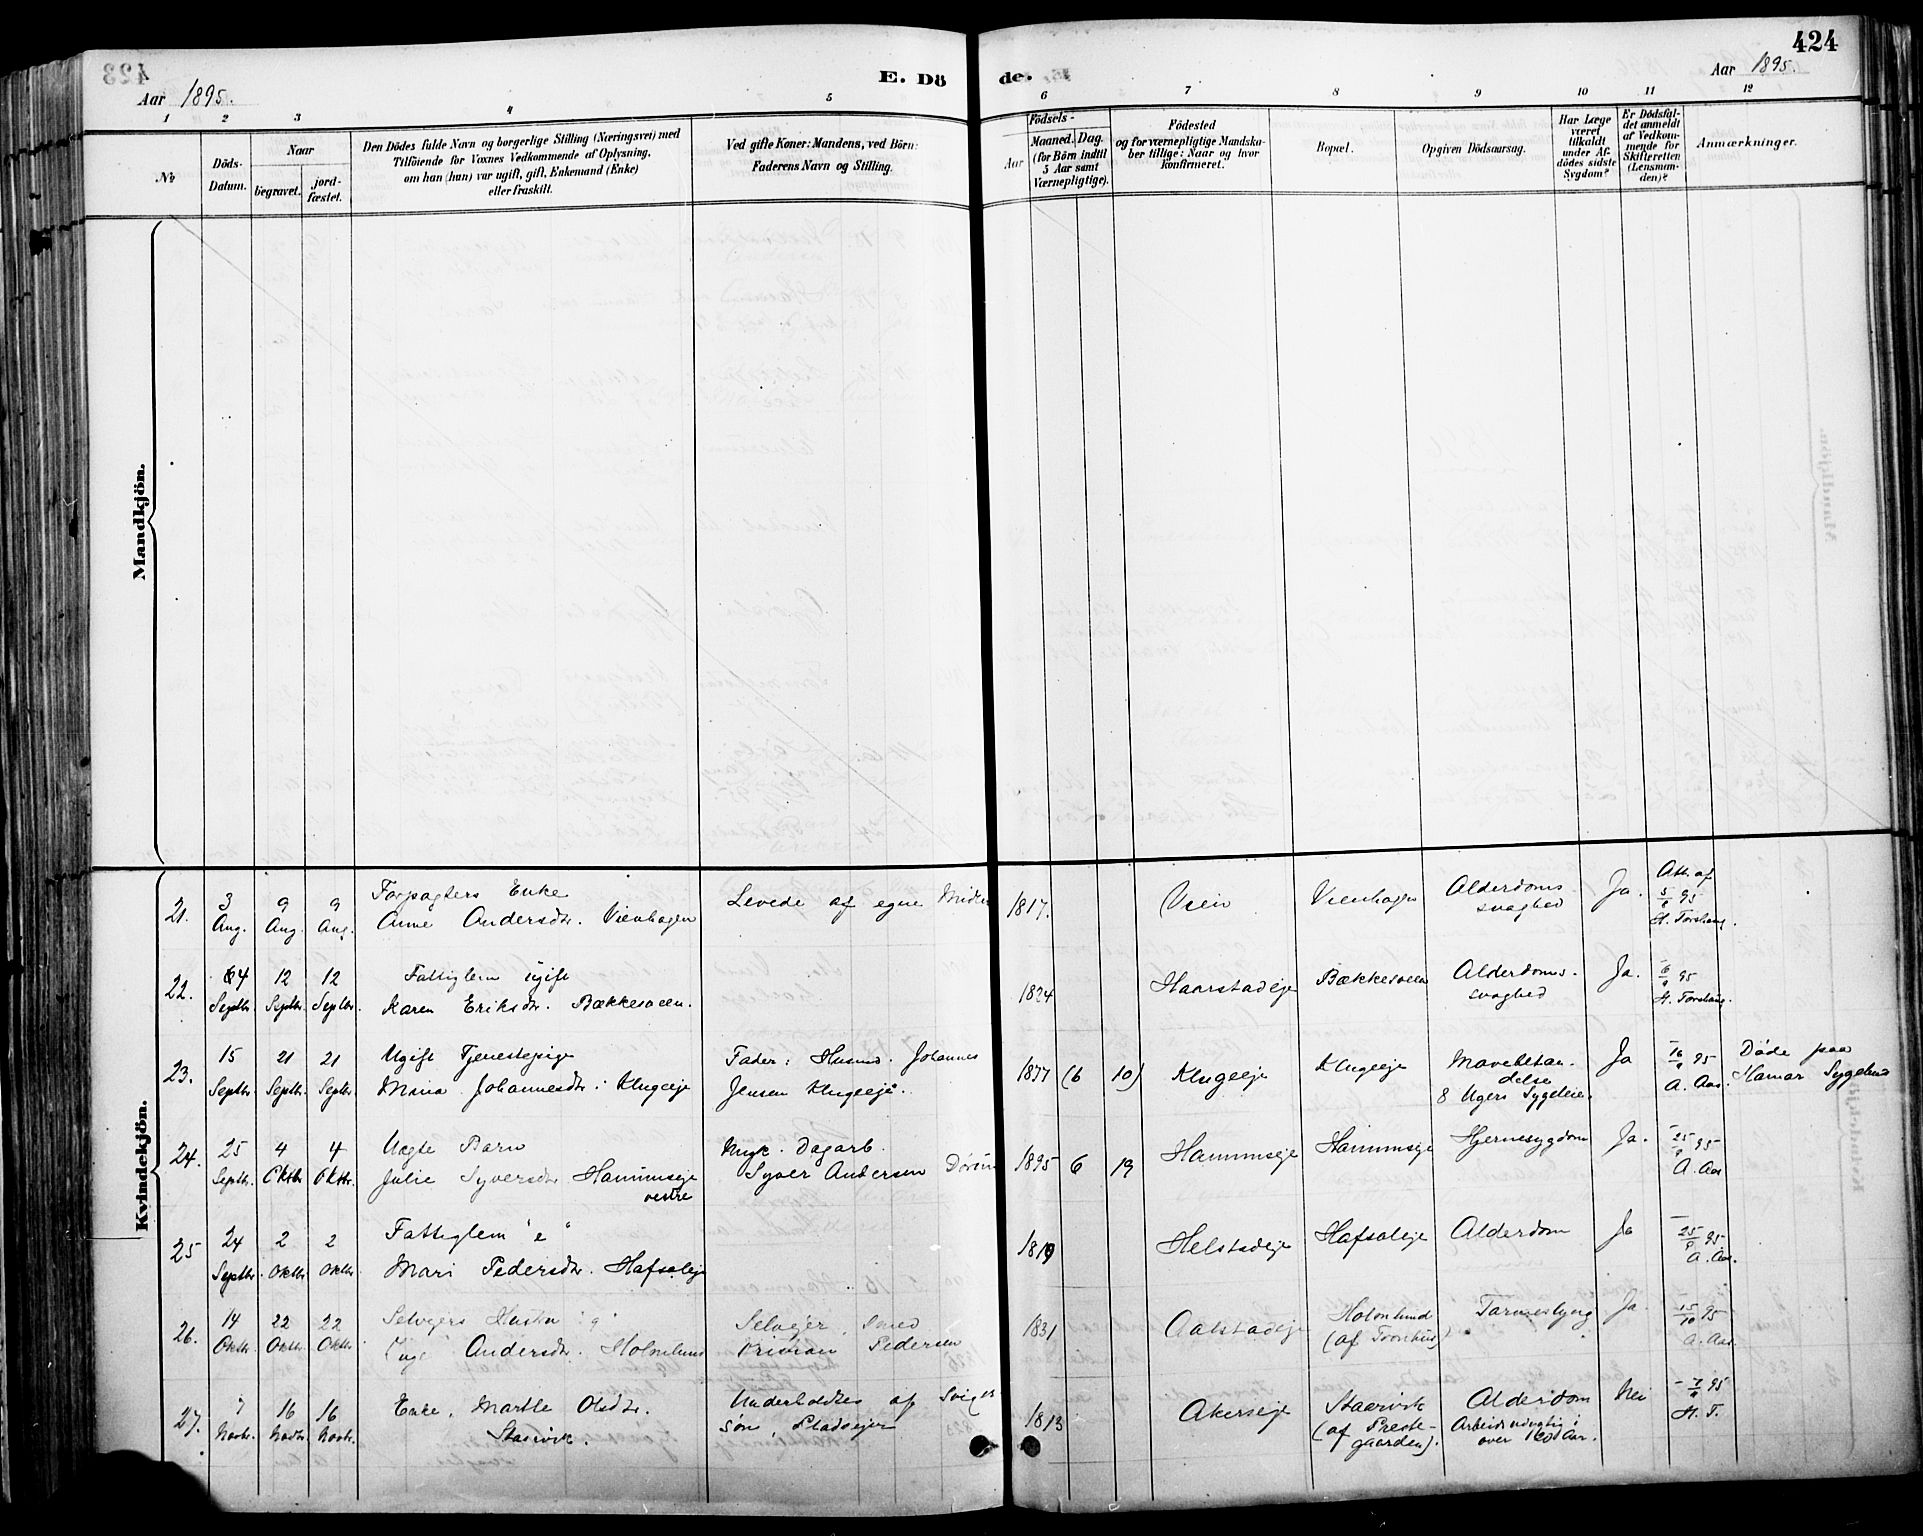 424
E. Dö de.
Aar 1895. Aar 1895.
1 2 3 4 5 6 7 8 9 10 11 12
No
Döds-Datum.
Naar
begravet. jordfæstet.
Den Dödes fulde Navn og borgerlige Stilling (Næringsvei) med
Tilföiende for Voxnes Vedkommende af Oplysning,
om han (hun) var ugift, gift, Enkemand (Enke)
eller fraskilt.
Ved gifte Koner: Mandens, ved Börn:
Faderens Navn og Stilling.
Födsels-
Aar Maaned. Dag.
(for Börn indtil
5 Aar samt
Værnepligtige).
Födested
og for værnepligtige Mandska-
ber tillige: Naar og hvor
konfirmeret.
Bopæl.
Opgiven Dödsaarsag.
Har Læge
været
tilkaldt
under Af-
dödes sidste
Sygdom?
Er Dödsfal-
det anmeldt
af Vedkom-
mende for
Skifteretten
(Lensman-
den)?
Anmærkninger.
Mandkjön.
Kvindekjön.
21. 3 Aug. 9 Aug. 9 Aug. Forpagters Enke
Anne Andersdtr. Vienhagen Levede af egne Midler 1817. Vien Vienhagen Alderdoms
svaghed Ja. Att. af
5/8 95
H. Torshaug.
22. 4 Septbr. 12 Septbr. 12 Septbr. Fattiglem ugift
Karen Eriksdtr. Bækkesveen. 1824 Haarstadeje Bækkesveen Alderdoms-
svaghed Ja. 6/9 95
H. Torshaug.
23. 15 Septbr. 21 Septbr. 21 Septbr. Ugift Tjenestepige
Mina Johannesdtr. Klugeeje Fader: Husmd. Johannes
Jensen Klugeeje. 1877 (6 10) Klugeeje Klugeeje Mavebetæn-
delse
8 Ugers Sygeleie. Ja 16/9 95
A. Aas. Døde paa
Hamar Sygehus
24. 25 Septbr. 4 Oktbr. 4 Oktbr. Uægte Barn
Julie Syversdtr. Hammerseje
vestre Ungk. Dagarb.
Syver Andersen 1895 6 19 Hjernesygdom Ja. 25/9 95
A. Aas
25 24 Septbr. 2 Oktbr. 2 Oktbr. Fattiglem "e"
Mari Pedersdtr. Hafsaleje 1819 Helstadeje Hafsaleje Alderdom Ja 25/9 95
A. Aas.
26. 14 Oktbr. 22 Oktbr. 22 Oktbr. Selvejers Hustru "g"
Inge Andersdtr. Holmlund Selvejer, Smed
Kristian Pedersen 1831 Aalstadeje Holmlund
(af Torshus) Tarmeslyng Ja. 15/10 95
A. Aas.
27. 7 Novbr. 16 Novbr. 16 Novbr. Enke. Marthe Olsdtr.
Staarvik. Underholdtes af Svigers
søn, Pladsejer 1813 Akerseje Staarvik
(af Preste-
gaarden). Alderdom
Arbeidsudygtig i
over 20 Aar. Nei 7/9 95
H. T.